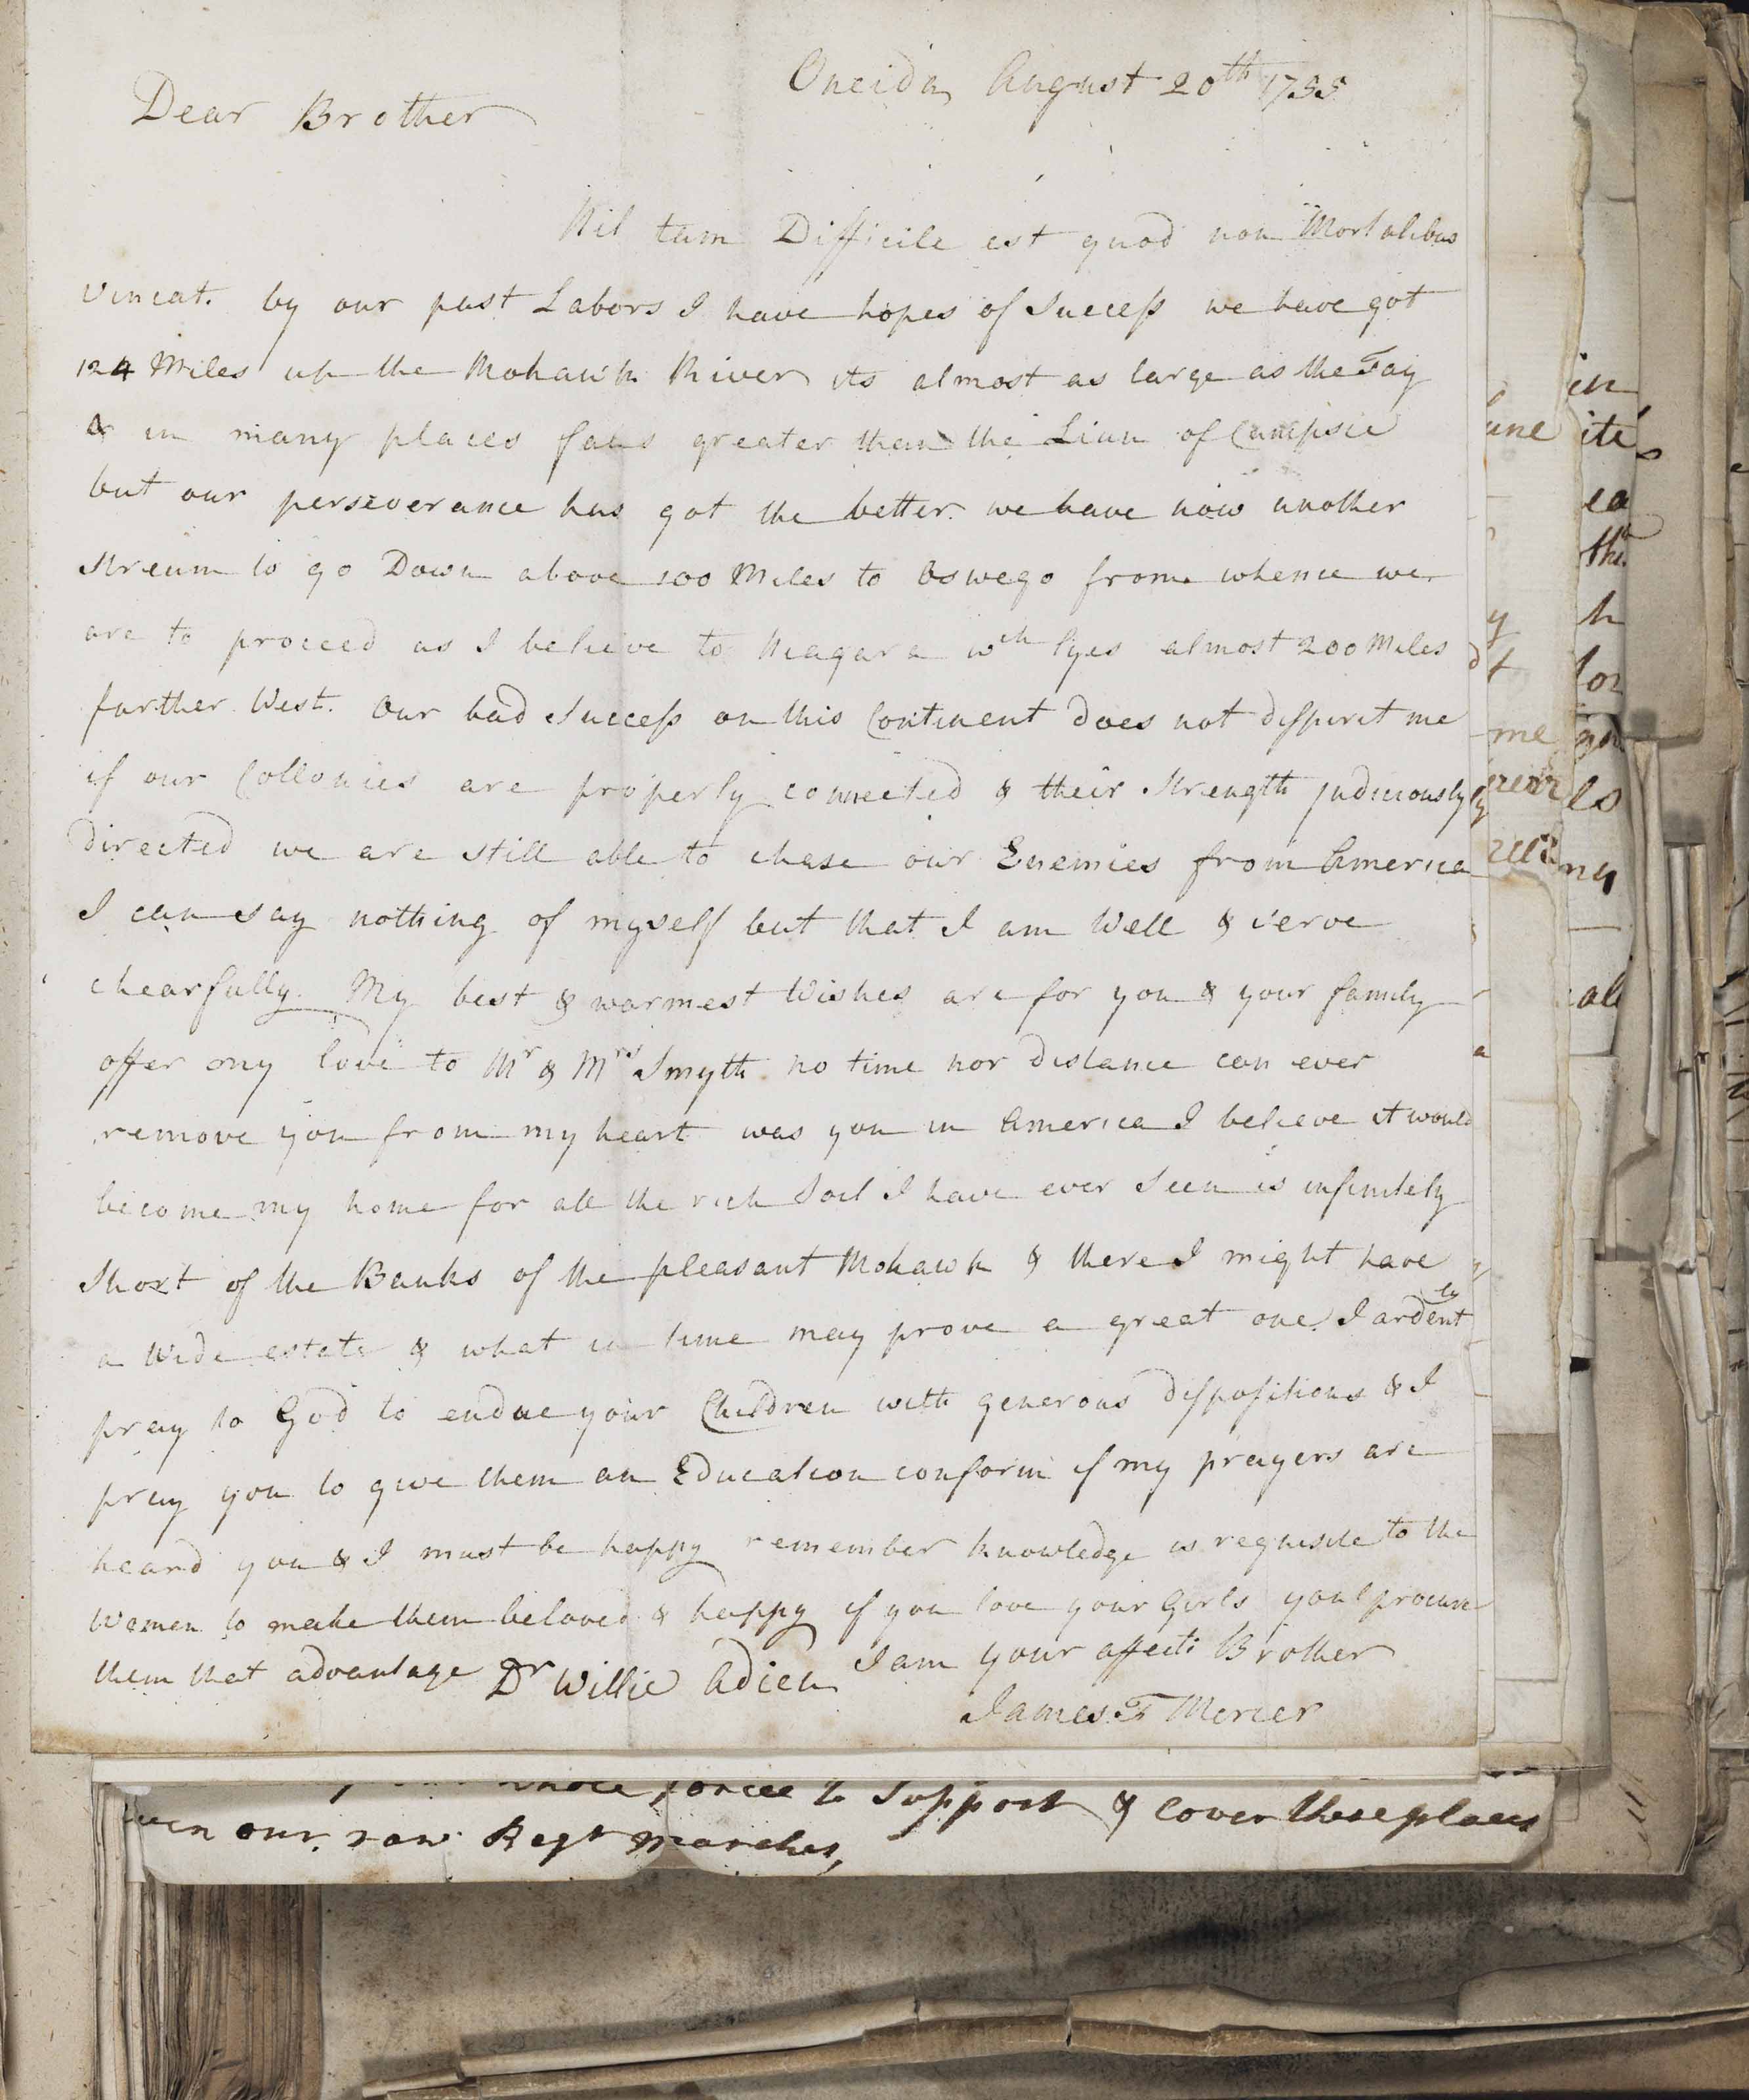 Oneida August 20th 1755
Dear Brother
Nil tam Difficile est quod non Mortalibus
vincat. by our past Labors I have hopes of Success we have got
124 Miles up the Mohawk River its almost as large as the Tay
& in many places falls greater than the Linn of Campsie
but our perseverance has got the better. we have now another
stream to go Down above 100 Miles to Oswego from whence we
are to proceed as I believe to Niagara wch lyes almost 200 Miles
further West. Our bad Success on this Continent does not dispirit me
if our Collonies are properly connected & their strength judiciously
directed we are still able to chase our Enemies from America
I can say nothing of myself but that I am Well & serve
chearfully. My best & warmest Wishes are for you & your family
offer my love to Mr & Mrs Smyth no time nor distance can ever
remove you from my heart was you in America I believe it would
become my home for all the rich Soil I have ever Seen is infinitely
Short of the Banks of the pleasant Mohawk & there I might have
a Wide estate & what in time may prove a great one. I ardently
pray to God to endue your Children with generous dispositions & I
pray you to give them an Education conform if my prayers are
heard you & I must be happy remember knowledge is requisite to the
Women to make them beloved & happy if you love your Girls youl procure
them that advantage Dr Willie Adieu I am your affect: Brother
James F Mercer
whole force to Support & Cover these places
our raw Regt marches,